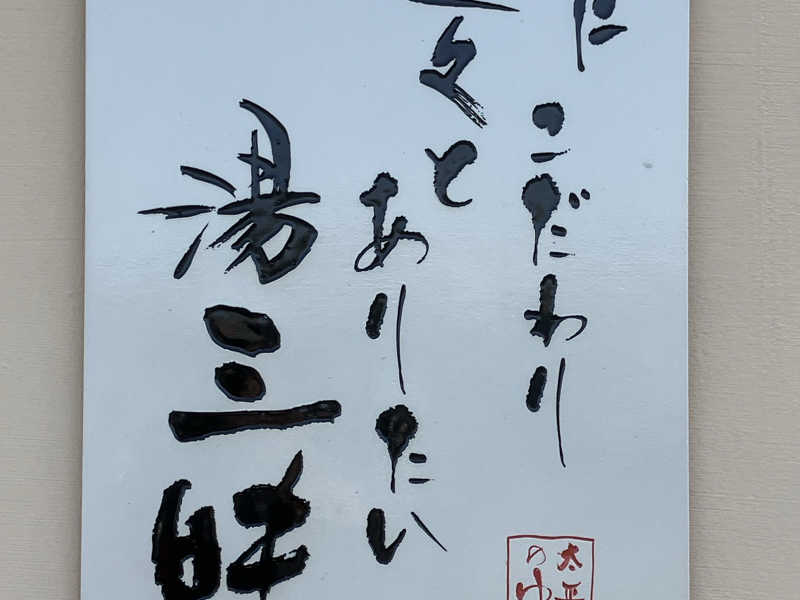 にこだわり
々とありたい
湯三昧
太平
のゆ